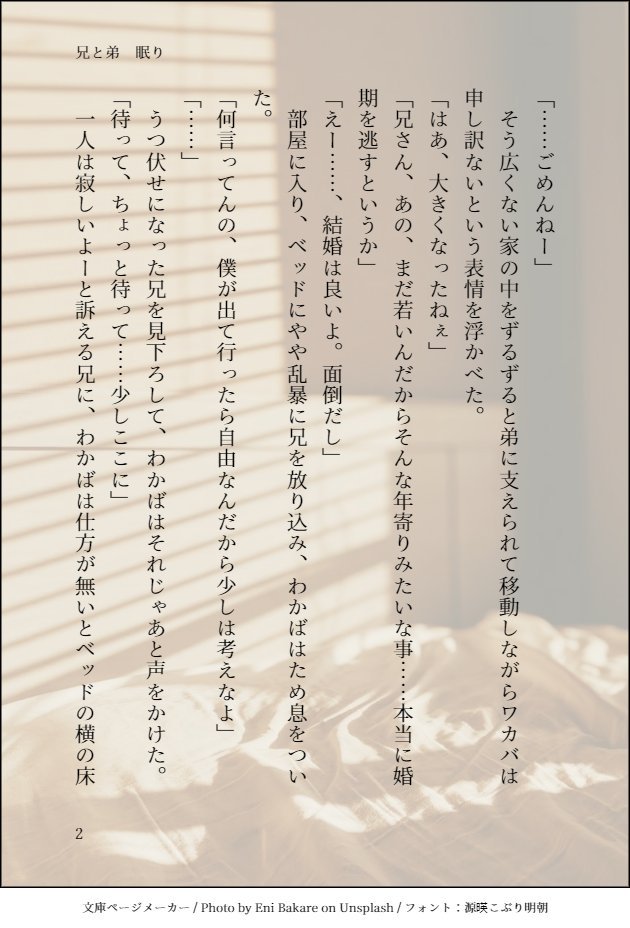 兄と弟　眠り
「……ごめんねー」
　そう広くない家の中をずるずると弟に支えられて移動しながらワカバは
申し訳ないという表情を浮かべた。
「はあ、大きくなったねぇ」
「兄さん、あの、まだ若いんだからそんな年寄りみたいな事……本当に婚
期を逃すというか」
「えー……、結婚は良いよ。面倒だし」
　部屋に入り、ベッドにやや乱暴に兄を放り込み、わかばはため息をつい
た。
「何言ってんの、僕が出て行ったら自由なんだから少しは考えなよ」
「……」
　うつ伏せになった兄を見下ろして、わかばはそれじゃあと声をかけた。
「待って、ちょっと待って……少しここに」
　一人は寂しいよーと訴える兄に、わかばは仕方が無いとベッドの横の床
2
文庫ページメーカー / Photo by Eni Bakare on Unsplash / フォント：源暎こぶり明朝